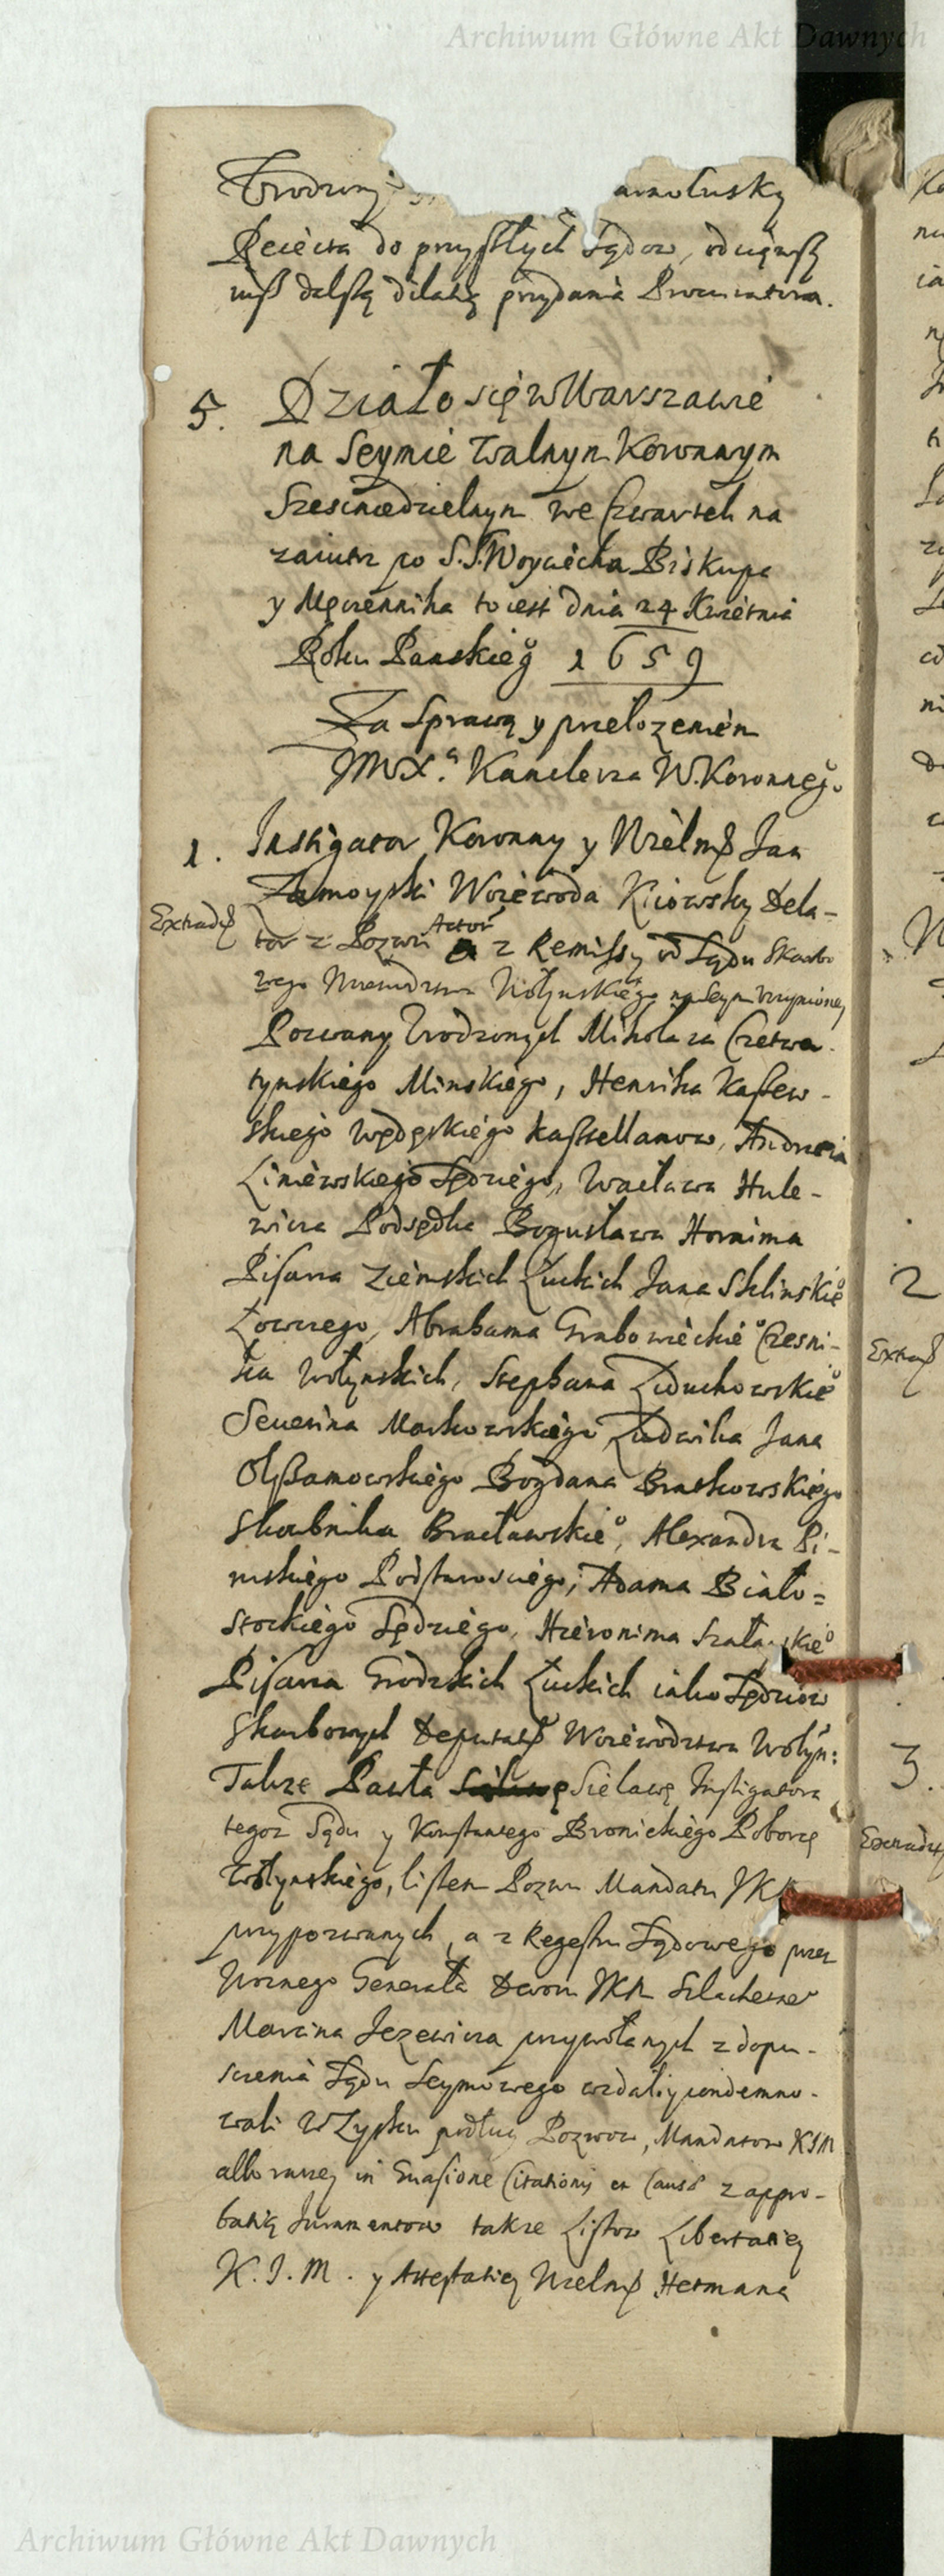 Archiwum Główne Akt Dawnych
Urodzony
do przyszłych Sądow, odciąwszy
wsz dalszą dilatią przydania Procuratora.
5. Działo się w Warszawie
na Seymie Walnym Koronnym
Szescniedzielnym we Czwartek na
zaiutrz po S.S. Woyciecha Biskupa
y Męczennika to iest dnia 24 Kwietnia
Roku Panskieg° 1659
Za Sprawą y przełozeniem
JMX.ª Kanclerza W. Koronneg°.
1. Instigator Koronny y Wielmß Jan
Zamoyski Woiewoda Kiiowsky Dela-
Extradß
tor z Pozwu Actor z Remissy od Sądu Skarbo
wego Woiewodztwa Wołynskiego na Seym uczynioney
Pozwany Urodzonych Mikołaia Czetwer-
tynskiego Minskiego, Henrika Kaszew-
skiego kasztellanow, Andrzeia
Liniewskiego Sędziego, Wacława Hule-
wicza Podsędka Bogusława Hornima
Pisarza Ziemskich Łuckich Jana Stelinskie°
Łowczego, Abrahama Grabowieckie° Czesni-
ka Wołynskich, Stephana Leduchowskie°
Seuerina Markowskiego Ludwika Jana
Olszamowskiego Bogdana Braskowskiego
Skarbnika Bracławskie°, Alexandra Pi-
nskiego Podstarosciego, Adama Biało=
stockiego Sędziego, Hieronima
Pisarza Grodzkich Łuckich iako Sędziow
Skarbowych Deputatß Woiewodztwa Wołyn:
Takze Pawła Sielawę Instigatora
tegoz Sądu y Konstantego Bronickiego Poborcę
Wołynskiego, listem Pozwu Mandatu JK
przypozwanych, a z Regestru Sądowego przez
Woznego Generała Dworu JKM Szlachetne°
Marcina Jezewicza przywołanych z dopu-
sczenia Sądu Seymowego wzdali y condemno-
wali w Zysku podług Pozwow, Mandatow KJM
albo raczey in Euasione Citationis et Causß z appro-
batią Juramentow takze Listow Libertatiey
K. J. M. y Attestatiey Wielmß Hetmana
2
Extradß
3.
Extradß
Archiwum Główne Akt Dawnych